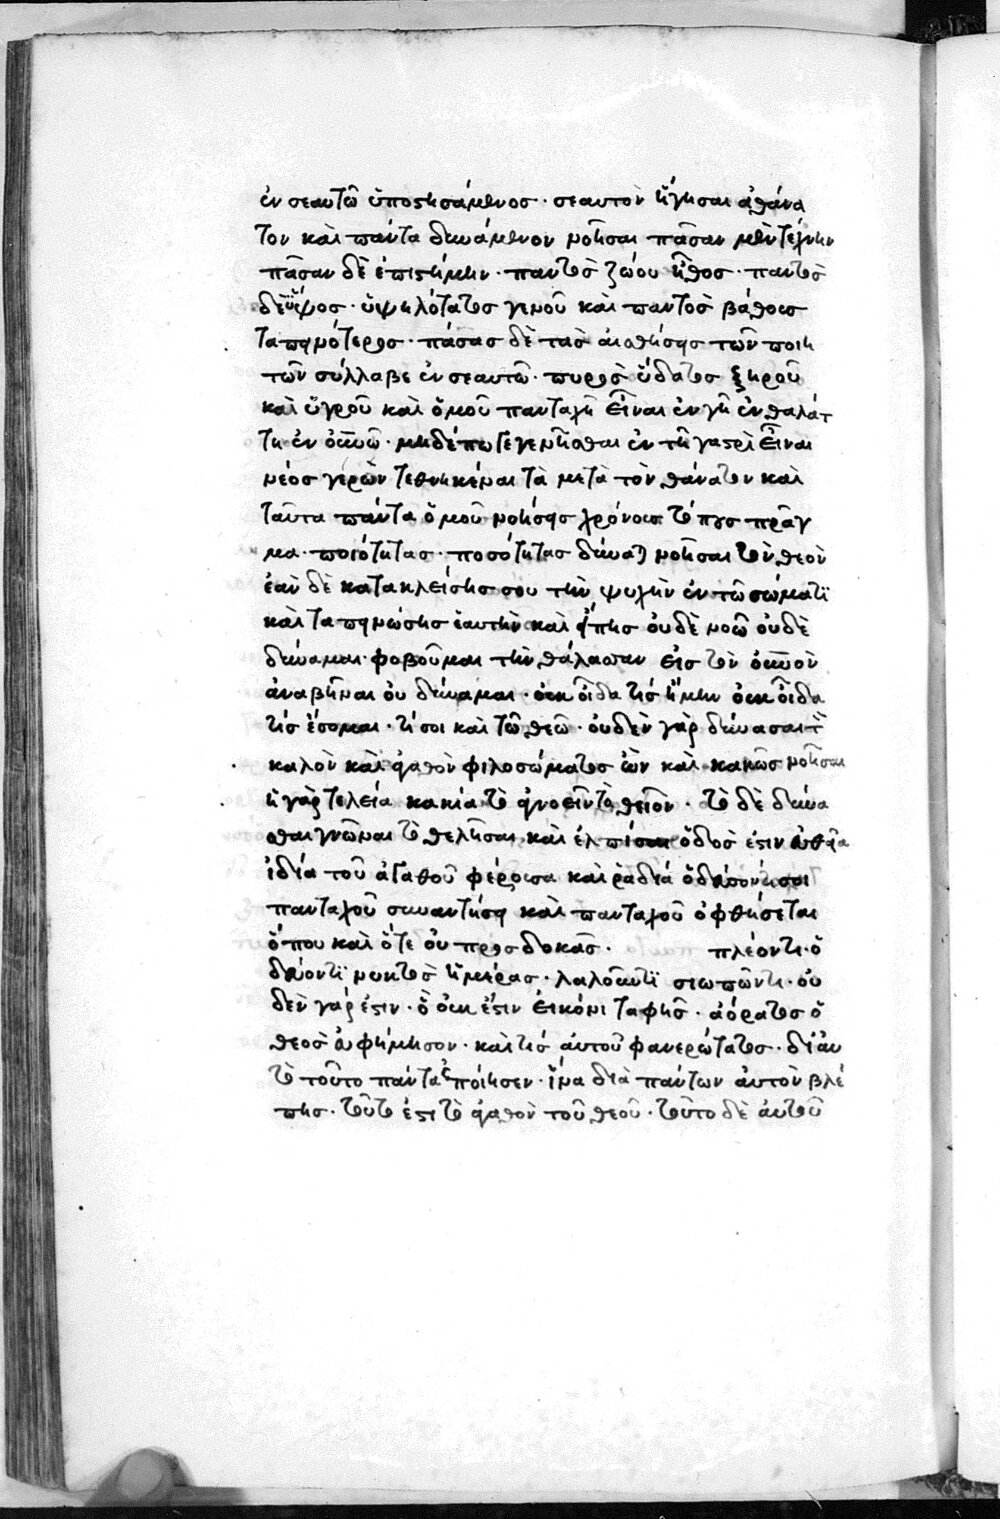 ἐν σεαυτῶ ὑποστησάμενος· σεαυτὸν ἥγησαι ἀθάνα
τον καὶ πάντα δυνάμενον νοῆσαι πᾶσαν μὲν τέχνην
πᾶσαν δὲ ἐπιστήμην· παντὸς ζώου ἦθος· παντὸς
δὲ ὕψος· ὑψηλότατος γενοῦ καὶ παντὸς βάθους
ταπεινότερος· πάσας δὲ τὰς αἰσθήσεις τῶν ποιη
τῶν σύλλαβε ἐν σεαυτῶ· πυρὸς ὕδατος ξηροῦ
καὶ ὑγροῦ καὶ ὁμοῦ πανταχῆ εἶναι ἐν γῆ ἐν θαλάτ
τη ἐν οὐνῶ· μηδέπω γεγενῆσθαι ἐν τῆ γαστρὶ εἶναι
νέος γέρων τεθνηκέναι τὰ μετὰ τὸν θάνατον καὶ
ταῦτα πάντα ὁμοῦ νοήσας χρόνους τόπους πρᾶγ
μα· ποιότητας· ποσότητας δύνα) νοῆσαι τὸν θεὸν
ἐὰν δὲ κατακλείσης σου τὴν ψυχὴν ἐν τῶ σώματι
καὶ ταπεινώσης ἑαυτὴν καὶ εἴπης οὐδὲ νοῶ οὐδὲ
δύναμαι φοβοῦμαι τὴν θάλασσαν εἰς τὸν οὐνὸν
ἀναβῆναι οὐ δύναμαι· οὐκ οἶδα τίς ἤμην οὐκ οἶδα
τίς ἔσομαι· τί σοι καὶ τῶ θεῶ· οὐδὲν γὰρ δύνασαι τ
καλὸν καὶ ἀγαθὸν φιλοσώματος ὢν καὶ κακῶς νοῆσαι
ἡ γὰρ τελεία κακία τὸ ἀγνοεῖν τὸ θεῖον· τὸ δὲ δύνα
σθαι γνῶναι τὸ θελῆσαι καὶ ἐλπίσαι ὁδός ἐστιν εὐθεῖα
ἰδία τοῦ ἀγαθοῦ φέρουσα καὶ ῥαδιά ὁδεύοντί σοι
πανταχοῦ συναντήσει καὶ πανταχοῦ ὀφθήσεται
ὅπου καὶ ὅτε οὐ προσδοκᾶς· πλέοντι· ὁ
δεύοντι νυκτὸς ἡμέρας· λαλοῦντι σιωπῶντι· οὐ
δὲν γάρ ἐστιν· ὃ οὐκ ἔστιν εἰκόνι ταφῆς· ἀόρατος ὁ
θεὸς εὐφήμησον· καὶ τίς αὐτοῦ φανερώτατος· δι αὐ
τὸ τοῦτο πάντα ἐποίησεν· ἵνα διὰ πάντων αὐτὸν βλέ
πης· τοῦτό ἐστι τὸ ἀγαθὸν τοῦ θεοῦ· τοῦτο δὲ αὐτοῦ